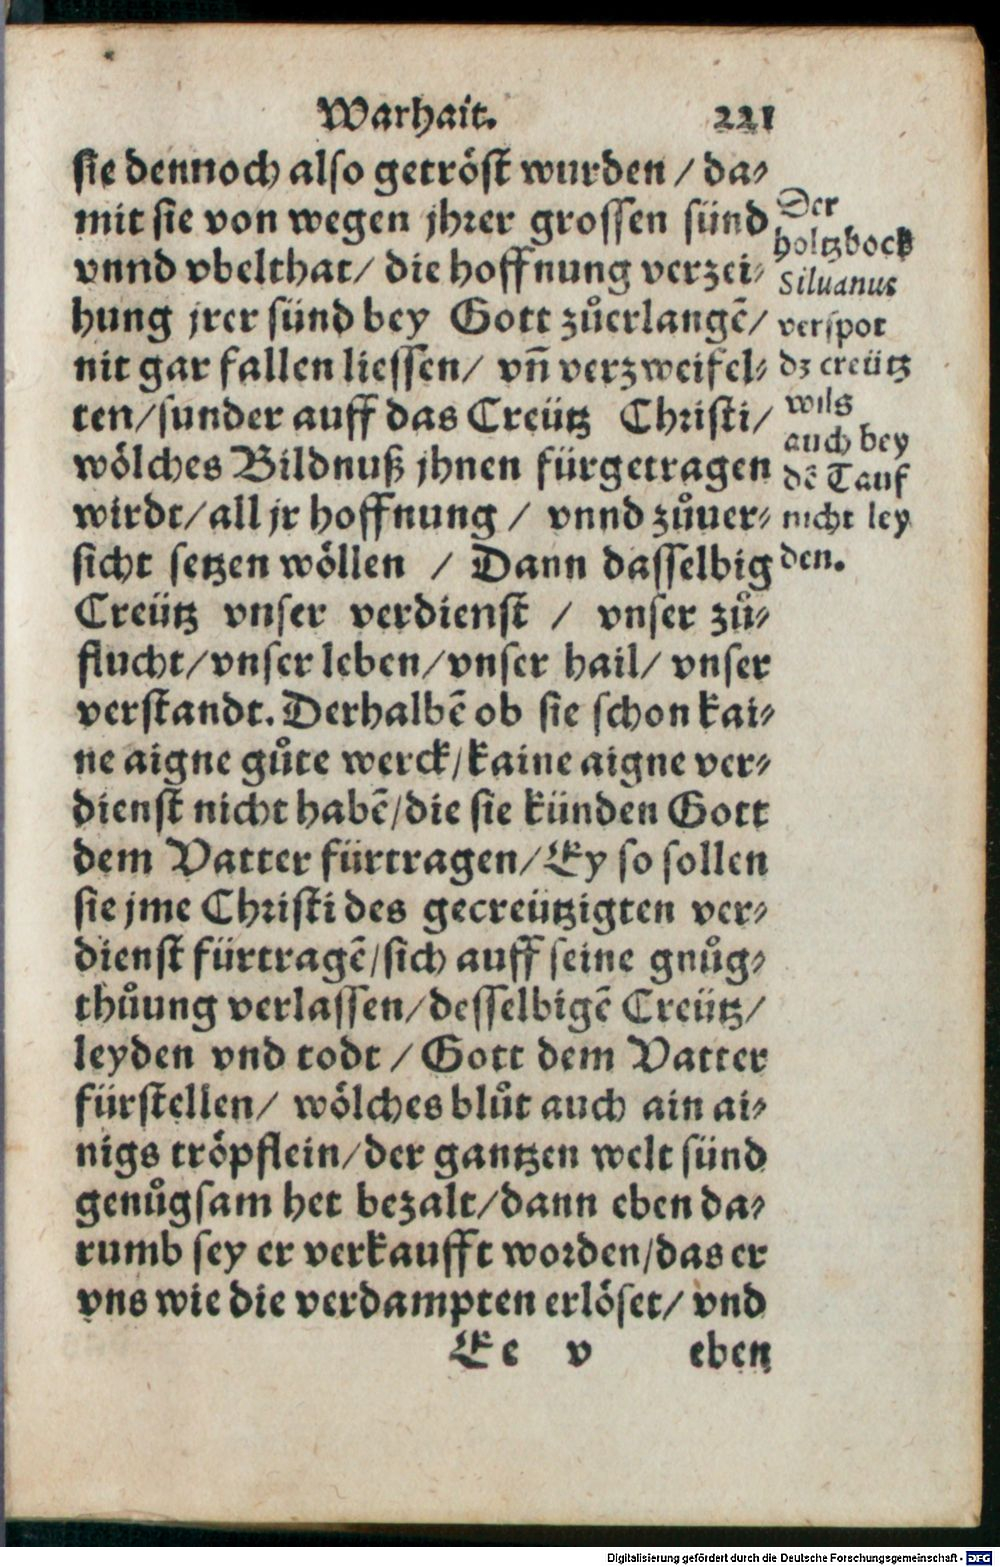 Warhait. 221
sie dennoch also getröst wurden / da⸗
mit sie von wegen jhrer grossen sünd
vnnd vbelthat / die hoffnung verzei⸗
hung jrer sünd bey Gott zůerlangẽ /
nit gar fallen liessen / vñ verzweifel⸗
ten / sunder auff das Creütz Christi /
wölches Bildnuß jhnen fürgetragen
wirdt / all jr hoffnung / vnnd zůuer⸗
sicht setzen wöllen / Dann dasselbig
Creütz vnser verdienst / vnser zů⸗
flucht / vnser leben / vnser hail / vnser
verstandt. Derhalbẽ ob sie schon kai⸗
ne aigne gůte werck / kaine aigne ver⸗
dienst nicht habẽ / die sie künden Gott
dem Vatter fürtragen / Ey so sollen
sie jme Christi des gecreützigten ver⸗
dienst fürtragẽ / sich auff seine gnůg⸗
thůung verlassen / desselbigẽ Creütz /
leyden vnd todt / Gott dem Vatter
fürstellen / wölches blůt auch ain ai⸗
nigs tröpflein / der gantzen welt sünd
genůgsam het bezalt / dann eben da⸗
rumb sey er verkaufft worden / das er
vns wie die verdampten erlöset / vnd
Ee v eben
Der
holtzbock
Siluanus
verspot
dz creütz
wils
auch bey
dẽ Tauf
nicht ley
den.
Digitalisierung gefördert durch die Deutsche Forschungsgemeinschaft - DFG